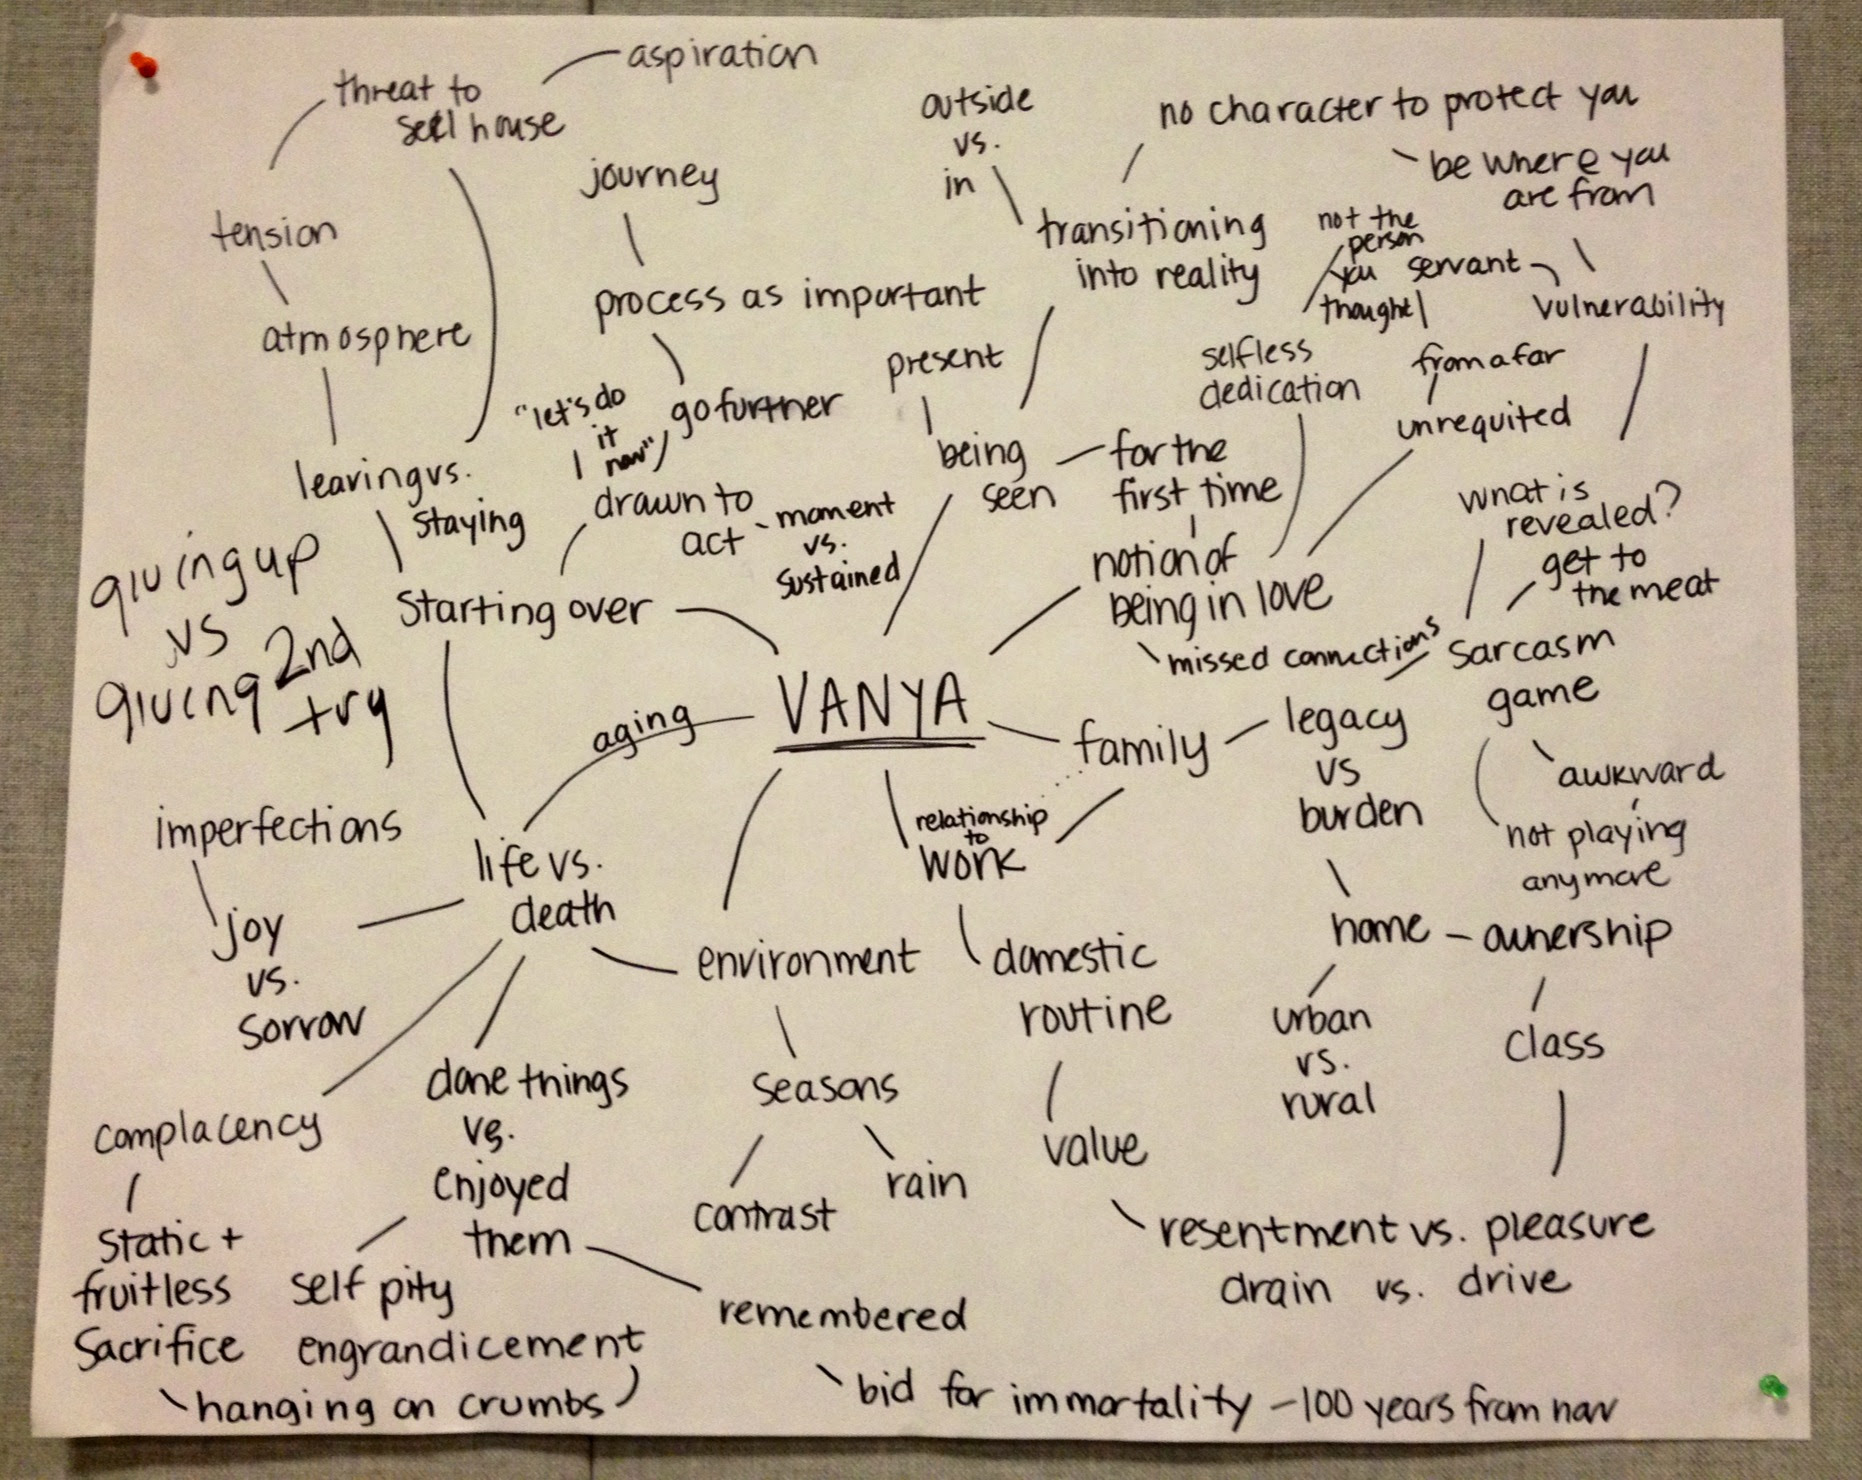 aspiration
threat to
sell house
outside
vs.
in
no character to protect you
be where you
are from
journey
tension
transitioning
into reality
not the
person
you
thought
servant
vulnerability
process as important
atmosphere
present
selfless
dedication
from afar
unrequited
"let's do
it
now"
go further
being
seen
for the
first time
leaving vs.
staying
drawn to
act
moment
vs.
sustained
what is
revealed?
get to
the meat
giving up
vs
giving 2nd
try
starting over
notion of
being in love
missed connections
sarcasm
game
aging
VANYA
family
legacy
vs
burden
awkward
not playing
anymore
imperfections
relationship
to
work
life vs.
death
joy
vs.
sorrow
environment
domestic
routine
home
ownership
urban
vs.
rural
class
complacency
done things
vs.
enjoyed
them
seasons
value
contrast
rain
static +
fruitless
sacrifice
self pity
engrandicement
hanging on crumbs
remembered
resentment vs. pleasure
drain vs. drive
bid for immortality - 100 years from now